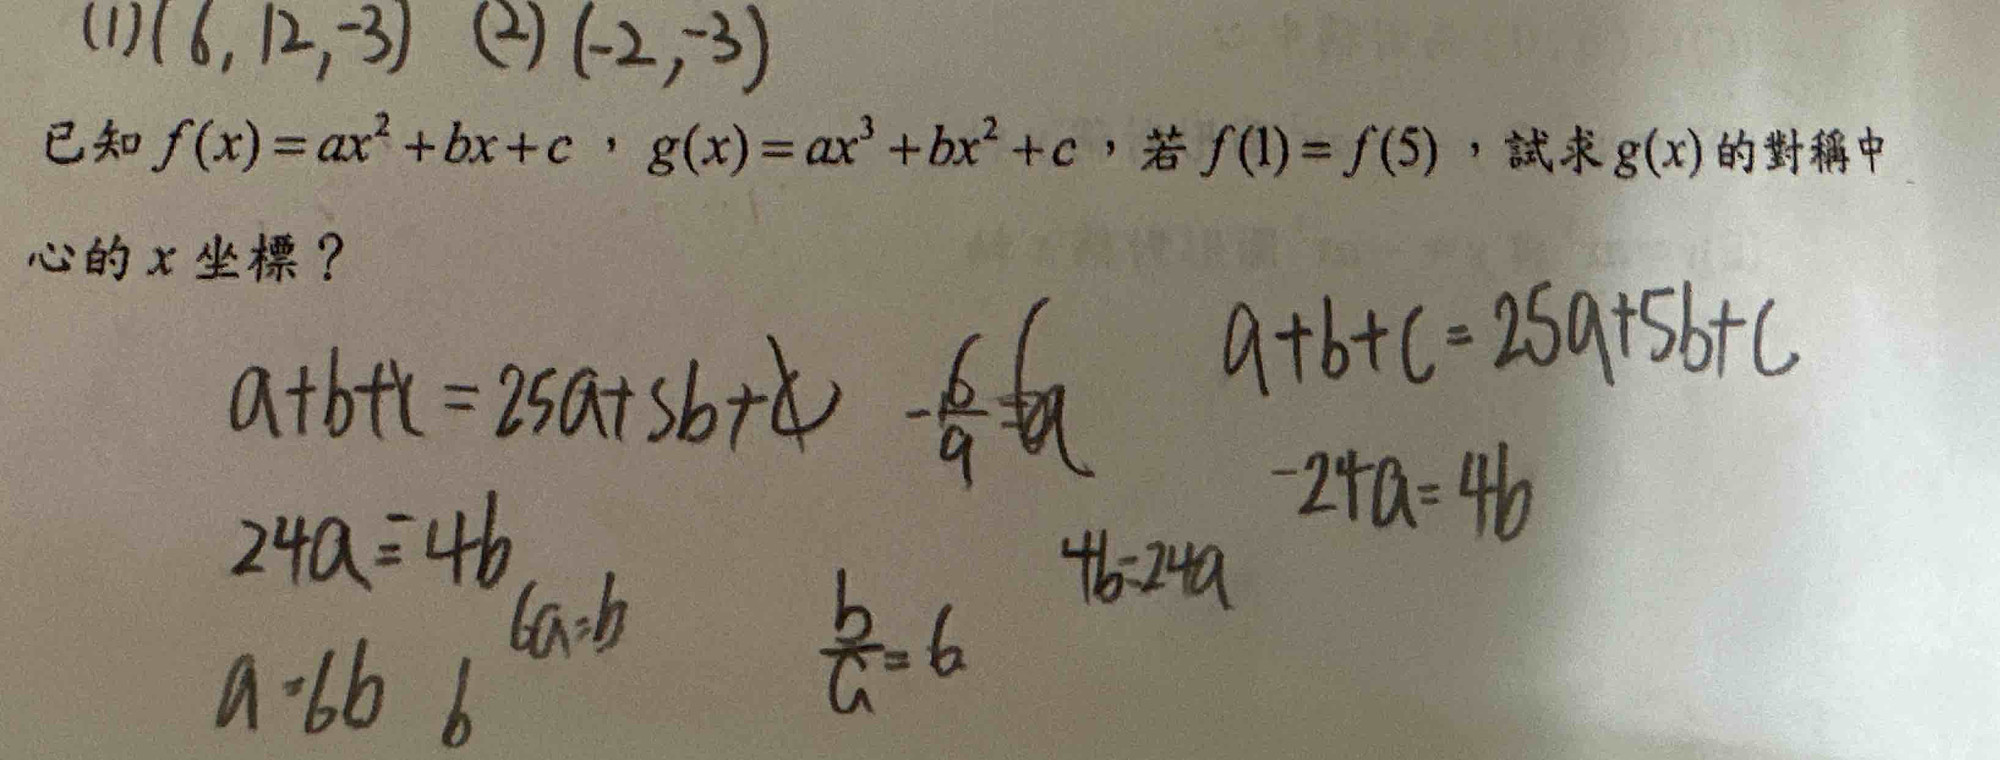 (1)(6,12,-3) (2)(-2,-3)
已知 f(x)=ax²+bx+c，g(x)=ax³+bx²+c，若 f(1)=f(5)，試求 g(x) 的對稱中
心的 x 坐標？
a+b+c=25a+5b+c
a+b+c=25a+5b+c
-24a=4b
24a=-4b
4b=24a
6a=b
b/a=6
a=6b 6